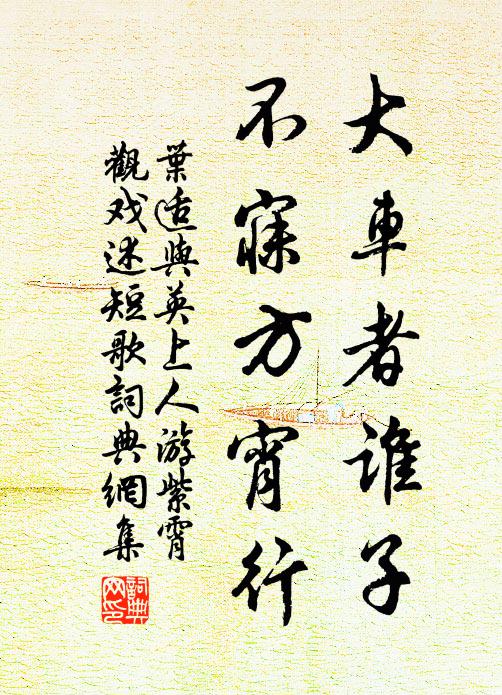 大車者誰子
不寐方宵行
葉适與英上人游紫霄
觀戏述短歌詞典網集
詞典
网印